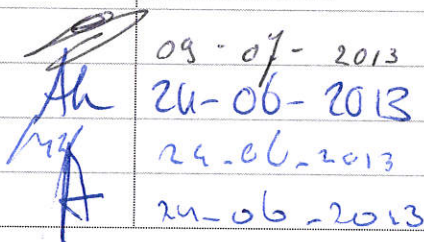 09-07-2013
Ah 24-06-2013
24-06-2013
24-06-2013